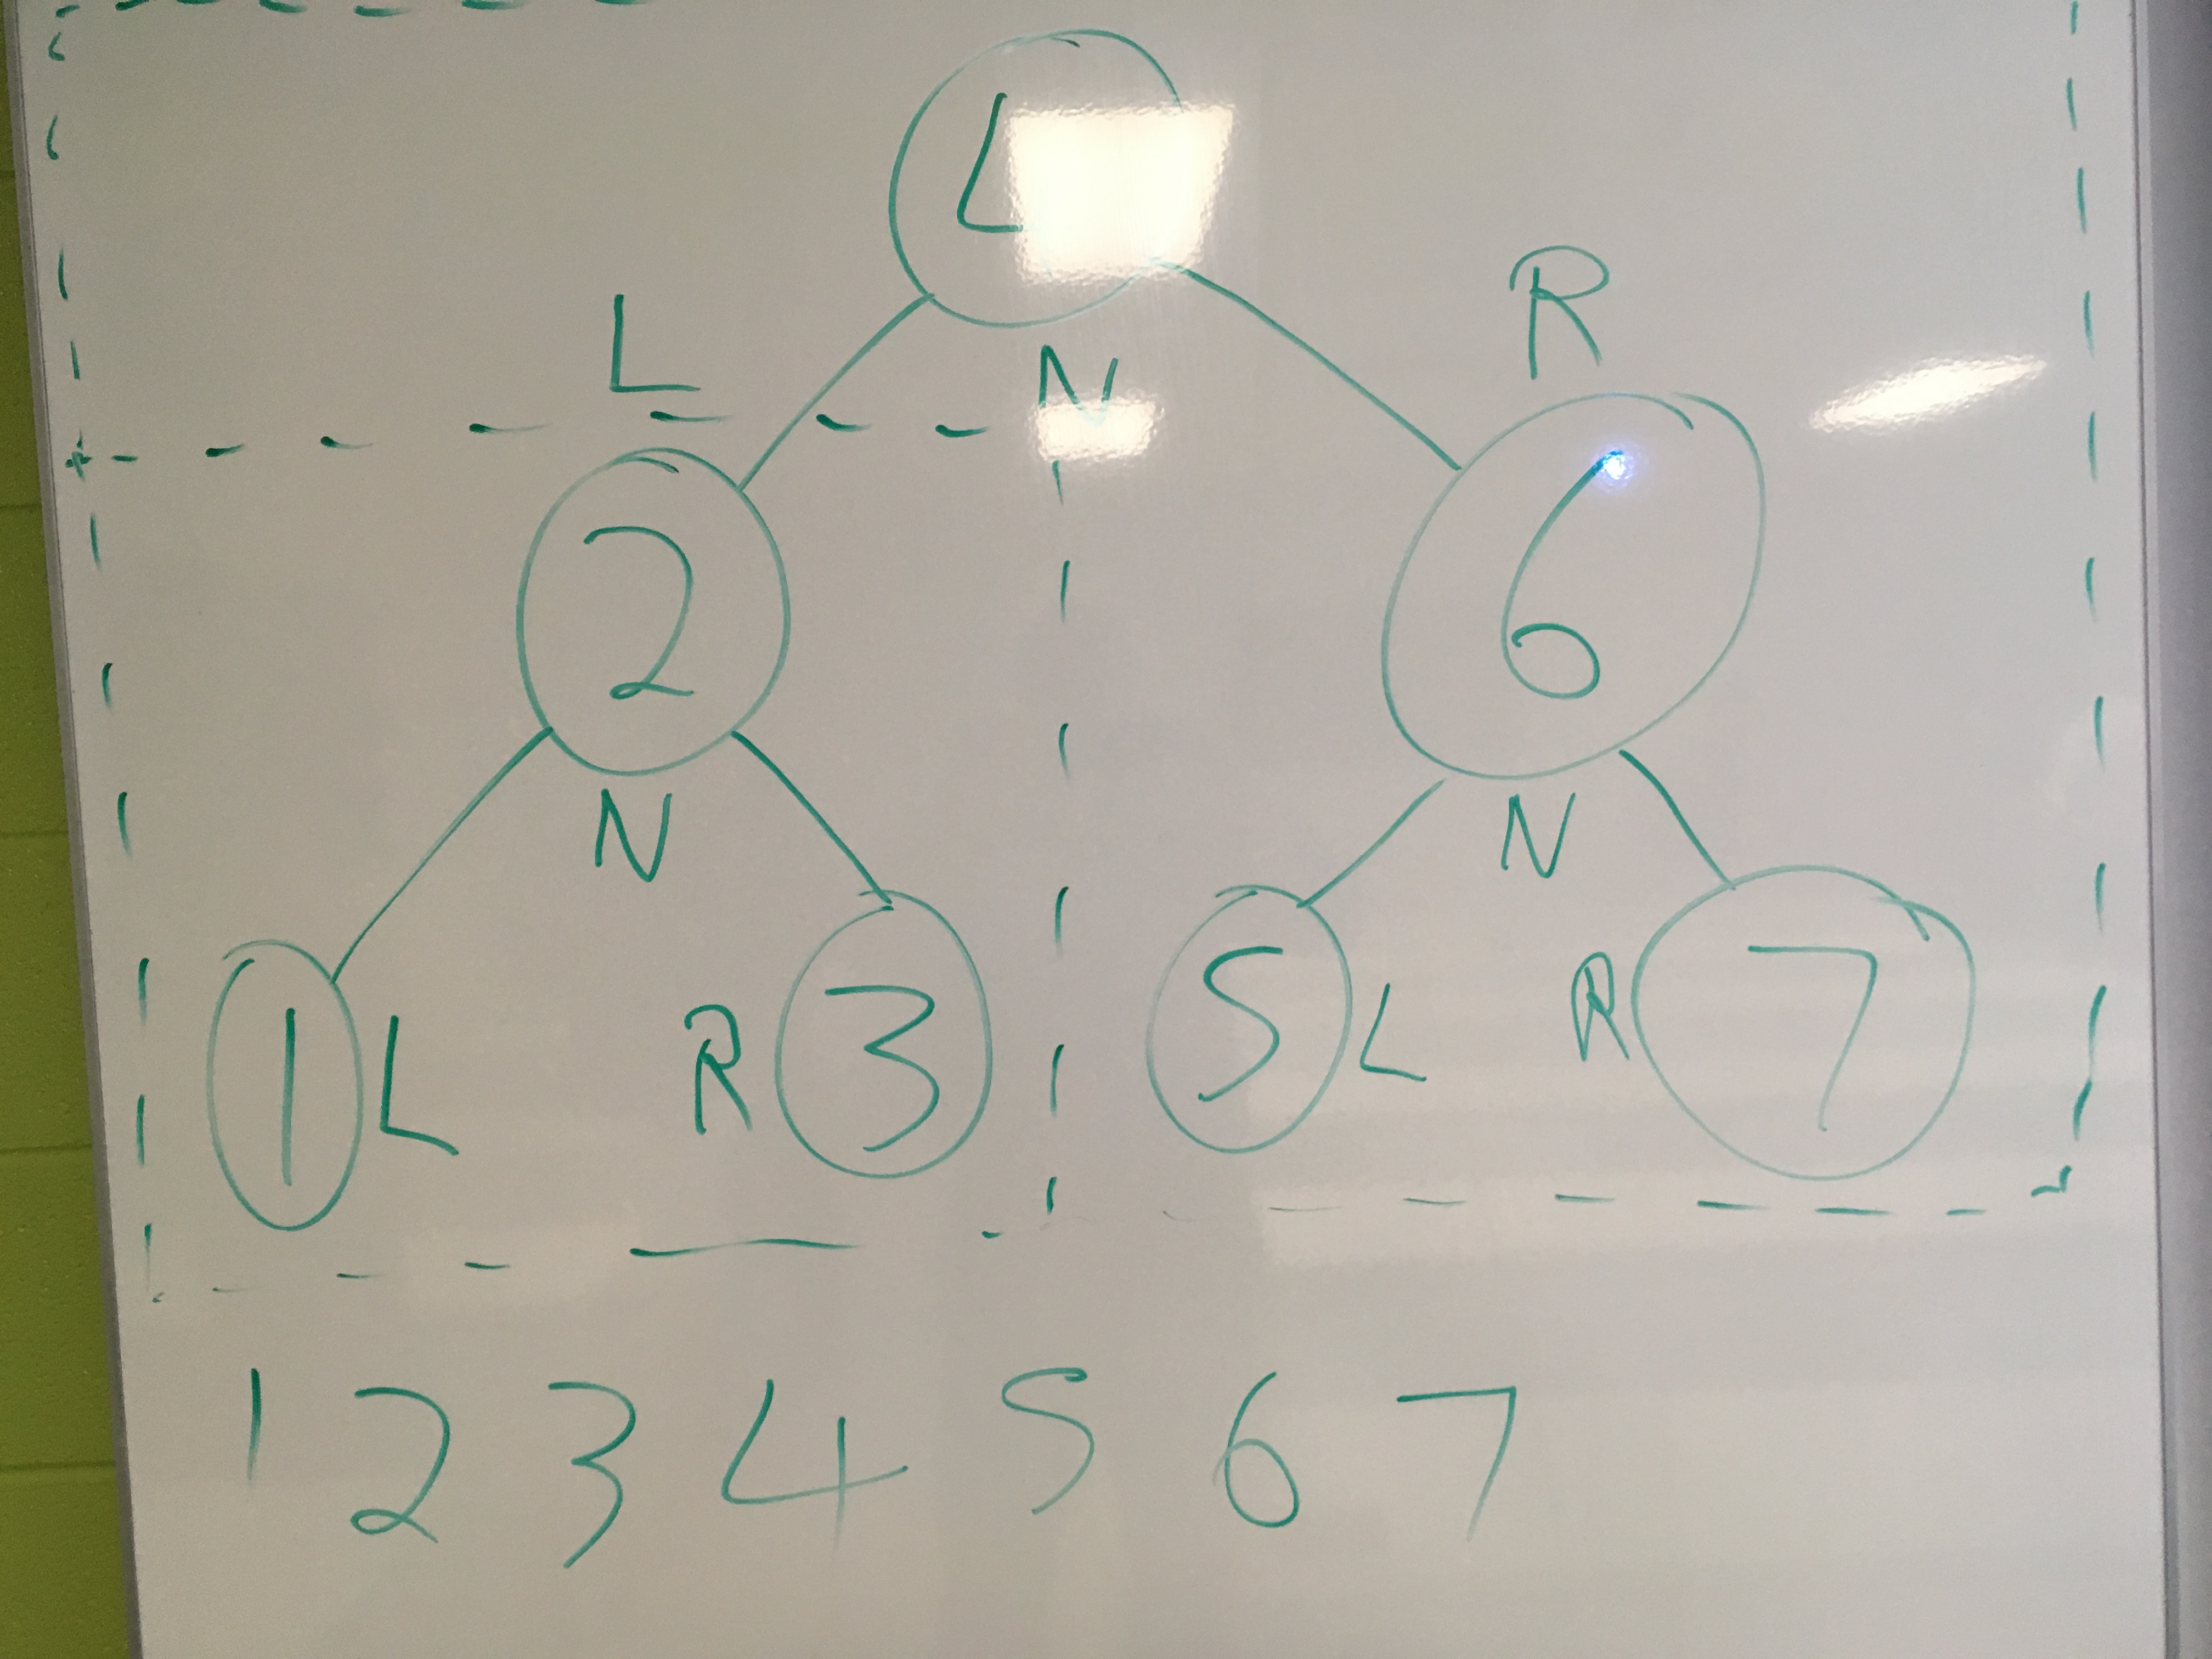 L R
N
2 6
N N
1 L R 3 5 L R 7
1 2 3 4 5 6 7